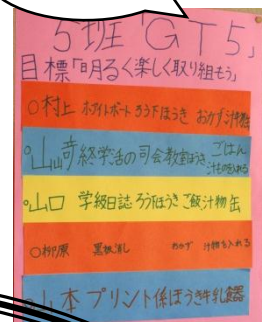 5班「GT5」
目標「明るく楽しく取り組もう」
○村上 ホワイトボート ろう下ほうき おかず 汁物
○山崎 終学活の司会 教室ほうき ごはん
汁ものを入れる
○山口 学級日誌 ろう下ほうき ご飯 汁物 缶
○柳原 黒板消し おかず 汁物を入れる
○山本 プリント係 ほうき 牛乳 食器